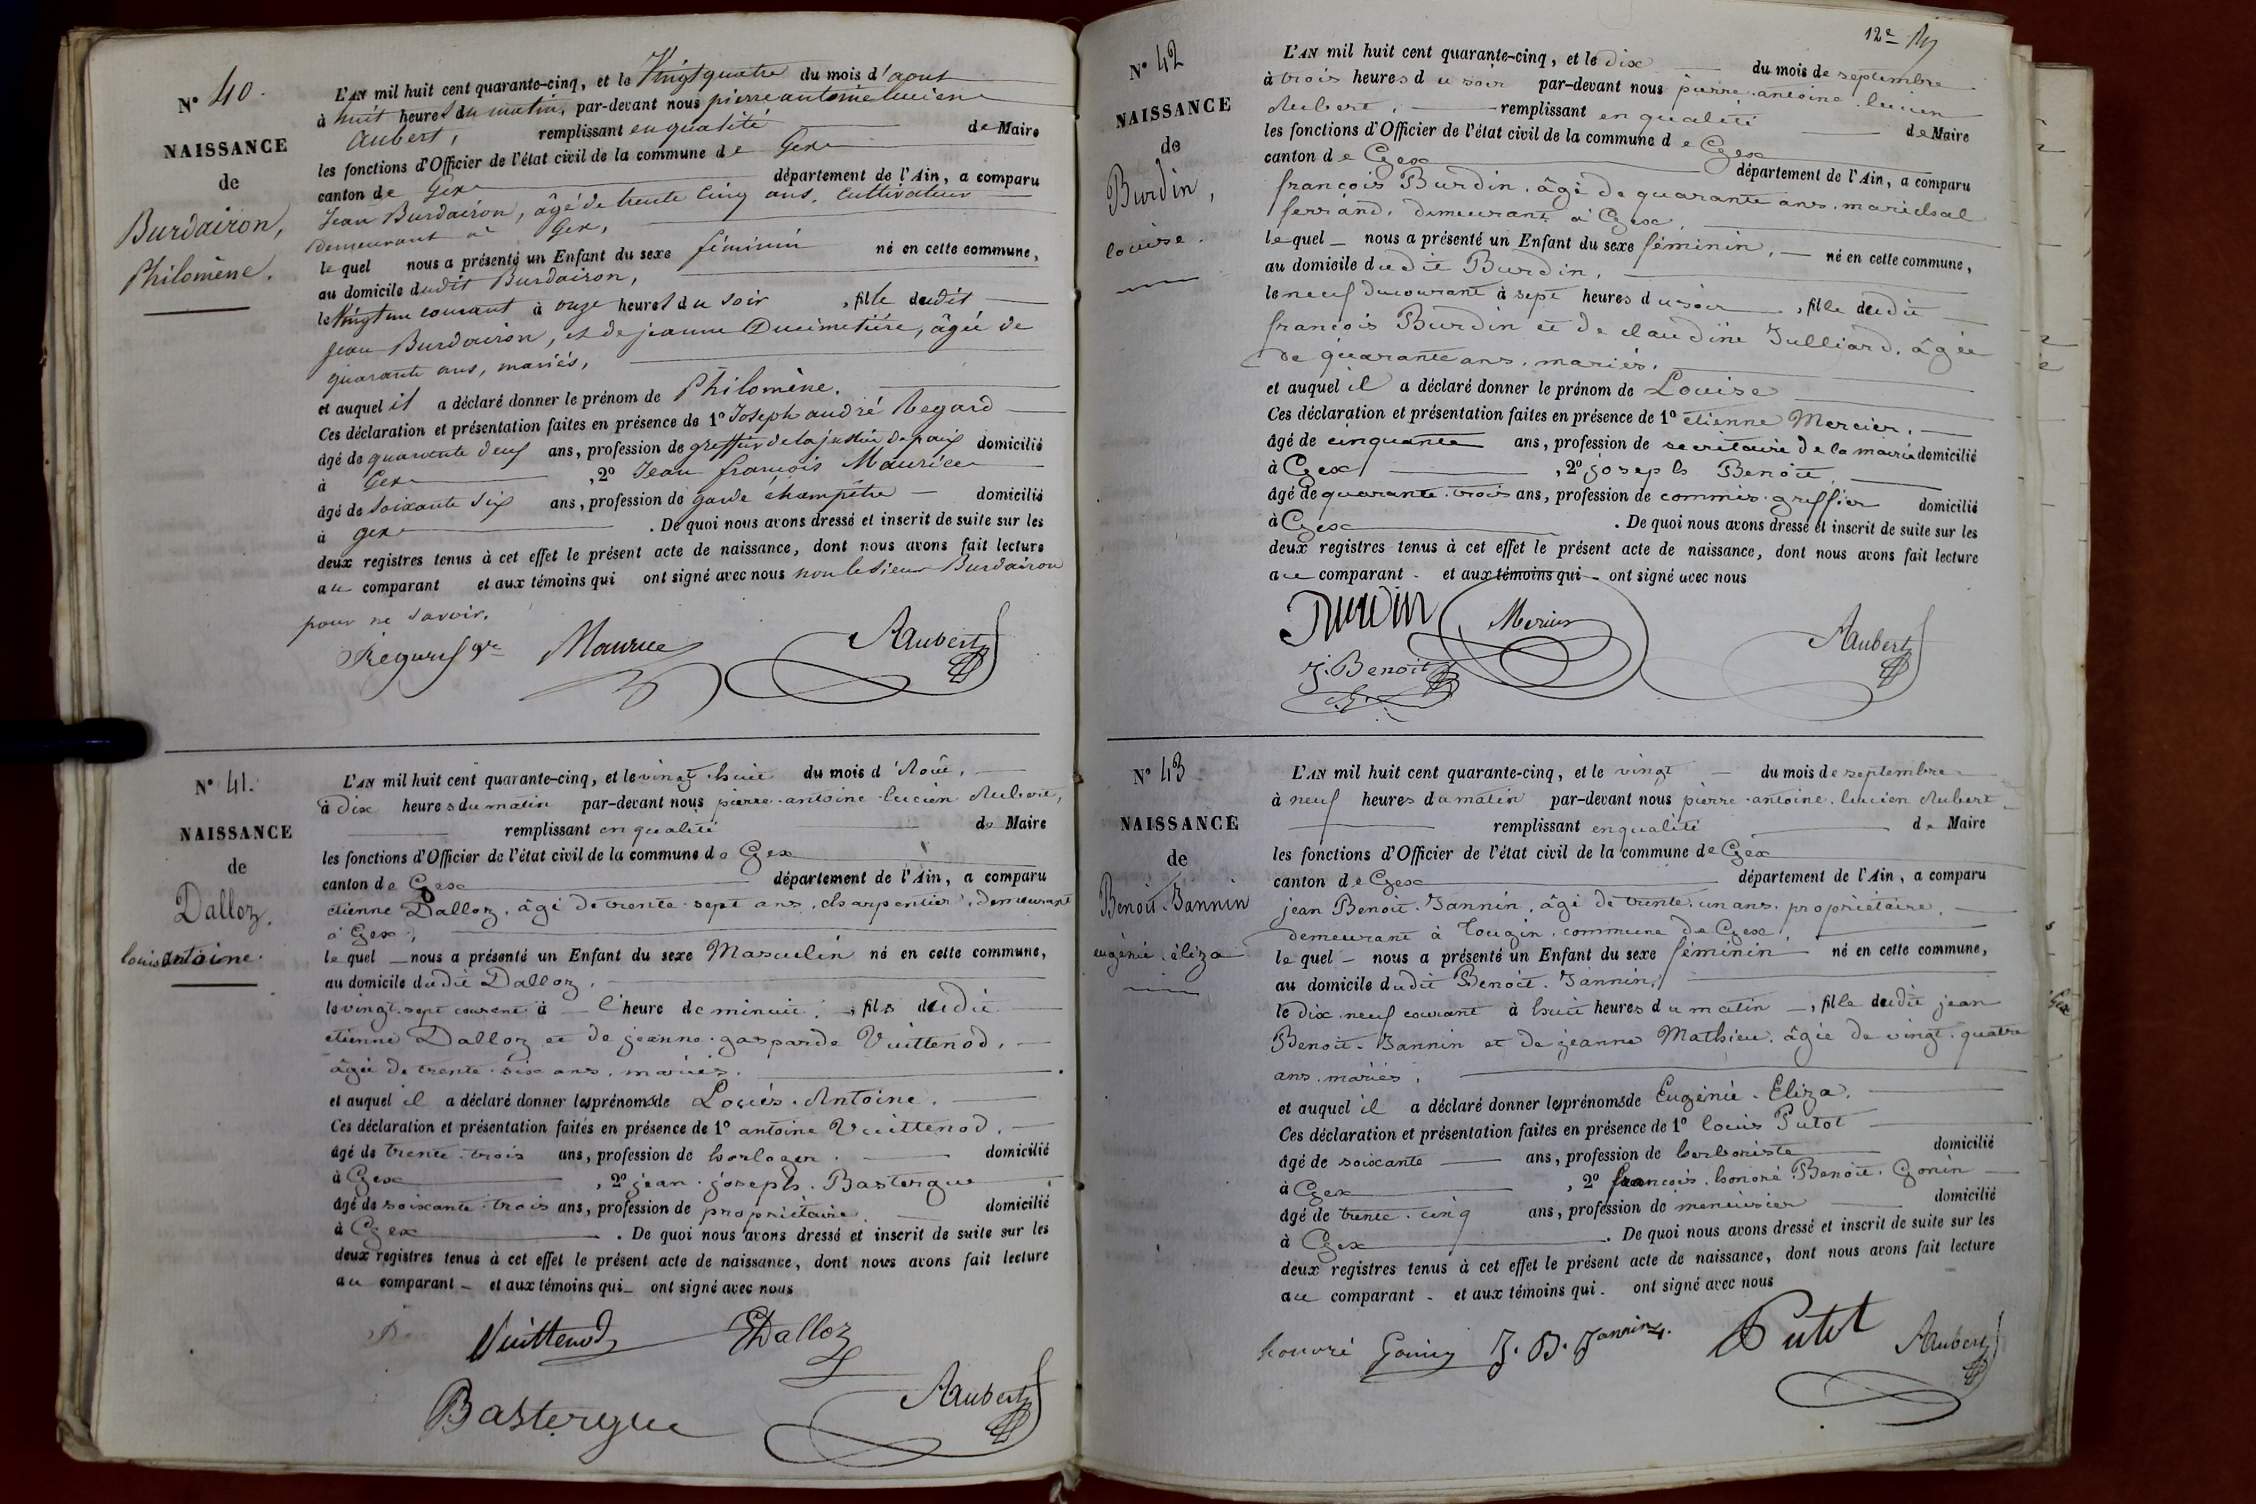 N° 40.
NAISSANCE
de
Burdairon,
Philomène.
L'AN mil huit cent quarante-cinq, et le Vingt quatre du mois d'aout
à huit heures du matin, par-devant nous pierre antoine lucien
Aubert, remplissant en qualité de Maire
les fonctions d'Officier de l'état civil de la commune de Gex
canton de Gex département de l'Ain, a comparu
Jean Burdairon, âgé de trente cinq ans, cultivateur
demeurant à Gex,
lequel nous a présenté un Enfant du sexe féminin né en cette commune,
au domicile dudit Burdairon,
le Vingt un courant à onze heures du soir, fille dudit
jean Burdairon, et de jeanne Ducimetière, âgée de
quarante ans, mariés,
et auquel il a déclaré donner le prénom de Philomène.
Ces déclaration et présentation faites en présence de 1° Joseph andré Regard
âgé de quarante deux ans, profession de greffier de la justice de paix domicilié
à Gex, 2° Jean françois Maurice
âgé de soixante six ans, profession de garde champêtre domicilié
à gex. De quoi nous avons dressé et inscrit de suite sur les
deux registres tenus à cet effet le présent acte de naissance, dont nous avons fait lecture
au comparant et aux témoins qui ont signé avec nous non le sieur Burdairon
pour ne savoir.
Regard gr Maurice AAubert
N° 41.
NAISSANCE
de
Dalloz,
louis antoine.
L'AN mil huit cent quarante-cinq, et le vingt huit du mois d'Aoùt,
à dix heures du matin par-devant nous pierre-antoine-lucien Aubert,
remplissant en qualité de Maire
les fonctions d'Officier de l'état civil de la commune de Gex
canton de Gex département de l'Ain, a comparu
etienne Dalloz, âgé de trente-sept ans, charpentier, demeurant
à Gex,
lequel nous a présenté un Enfant du sexe Masculin né en cette commune,
au domicile dudit Dalloz,
le vingt-sept courant à l'heure de minuit, fils dudit
etienne Dalloz et de jeanne-gasparde Vuittenod,
âgée de trente-six ans, mariés.
et auquel il a déclaré donner les prénoms de Louis-Antoine.
Ces déclaration et présentation faites en présence de 1° antoine Vuittenod,
âgé de trente-trois ans, profession de horloger. domicilié
à Gex, 2° jean-joseph-Bastergue
âgé de soixante-trois ans, profession de propriétaire domicilié
à Gex. De quoi nous avons dressé et inscrit de suite sur les
deux registres tenus à cet effet le présent acte de naissance, dont nous avons fait lecture
au comparant et aux témoins qui ont signé avec nous
Vuittenod EDalloz
Bastergue AAubert
12e
N° 42
NAISSANCE
de
Burdin,
louise.
L'AN mil huit cent quarante-cinq, et le dix du mois de septembre
à trois heures du soir par-devant nous pierre-antoine-lucien
Aubert, remplissant en qualité de Maire
les fonctions d'Officier de l'état civil de la commune de Gex
canton de Gex département de l'Ain, a comparu
françois Burdin, âgé de quarante ans, maréchal
ferrand, demeurant à Gex,
lequel nous a présenté un Enfant du sexe féminin, né en cette commune,
au domicile dudit Burdin,
le neuf du courant à sept heures du soir, fille dudit
françois Burdin et de claudine Julliard, âgée
de quarante ans, mariés.
et auquel il a déclaré donner le prénom de Louise
Ces déclaration et présentation faites en présence de 1° étienne Mercier,
âgé de cinquante ans, profession de secrétaire de la mairie domicilié
à Gex, 2° joseph Benoit
âgé de quarante-trois ans, profession de commis-greffier domicilié
à Gex. De quoi nous avons dressé et inscrit de suite sur les
deux registres tenus à cet effet le présent acte de naissance, dont nous avons fait lecture
au comparant et aux témoins qui ont signé avec nous
Burdin Mercier AAubert
J. Benoit
N° 43
NAISSANCE
de
Benoit-Jannin
eugénie éliza
L'AN mil huit cent quarante-cinq, et le vingt du mois de septembre
à neuf heures du matin par-devant nous pierre-antoine-lucien Aubert
remplissant en qualité de Maire
les fonctions d'Officier de l'état civil de la commune de Gex
canton de Gex département de l'Ain, a comparu
jean Benoit-Jannin, âgé de trente-un ans, propriétaire,
demeurant à Tougin, commune de Gex,
lequel nous a présenté un Enfant du sexe féminin né en cette commune,
au domicile dudit Benoit-Jannin,
le dix-neuf courant à huit heures du matin, fille dudit jean
Benoit-Jannin et de jeanne Mathieu, âgée de vingt-quatre
ans, mariés,
et auquel il a déclaré donner les prénoms de Eugénie-Eliza.
Ces déclaration et présentation faites en présence de 1° louis Putot
âgé de soixante ans, profession de herboriste domicilié
à Gex, 2° françois-honoré Benoit-Gonin
âgé de trente-cinq ans, profession de menuisier domicilié
à Gex. De quoi nous avons dressé et inscrit de suite sur les
deux registres tenus à cet effet le présent acte de naissance, dont nous avons fait lecture
au comparant et aux témoins qui ont signé avec nous
honoré Gonin J. B. Jannin. Putot AAubert